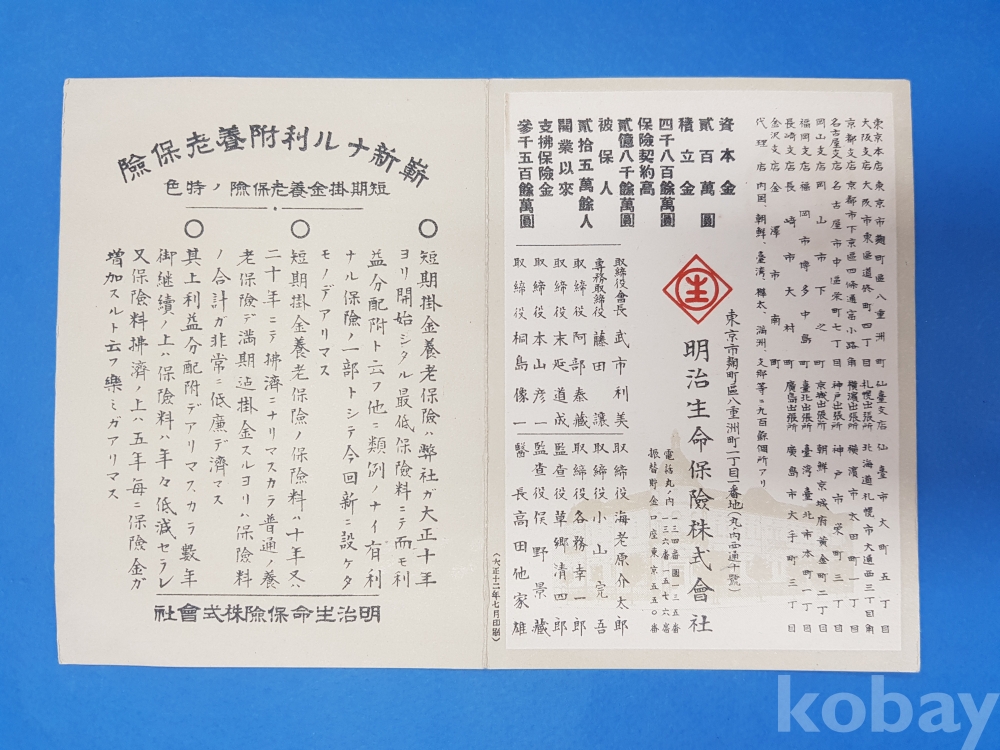 東京本店 東京市麹町區八重洲町
大阪支店 大阪市東區道修町四丁目
京都支店 京都市下京區四條通富小路角
名古屋支店 名古屋市中區栄町七丁目
岡山支店 岡山市下之町
福岡支店 福岡市博多中島町
長崎支店 長崎市大村町
金沢支店 金澤市南町
代理店 内国、朝鮮、臺湾、樺太、滿洲、支那等ニ九百餘個所アリ
仙臺支店 仙臺市大町五丁目
札幌出張所 北海道札幌市大通西三丁目角
橫濱出張所 橫濱市太田町一丁目
神戸出張所 神戸市栄町三丁目
京城出張所 朝鮮京城府黃金町二丁目
臺北出張所 臺灣臺北市本町一丁目
廣島出張所 廣島市大手町三丁目
資本金
貳百萬圓
積立金
四千八百餘萬圓
保險契約高
貳億八千餘萬圓
被保人
貳拾五萬餘人
開業以來
支拂保險金
參千五百餘萬圓
生
東京市麹町區八重洲町一丁目一番地(丸ノ内西通十號)
明治生命保險株式會社
電話丸ノ内
振替貯金口座東京五五〇番
取締役會長 武市利美
専務取締役 藤田讓
取締役 阿部泰藏
取締役 末延道成
取締役 本山彦一
取締役 桐島像一
取締役 海老原介太郎
取締役 小山完吾
取締役 各務幸一郎
監査役 草郷清四郎
監査役 俣野景藏
醫長 高田他家雄
(大正十二年七月印刷)
嶄新ナル利附養老保險
短期掛金養老保險ノ特色
〇 短期掛金養老保險ハ弊社ガ大正十年
ヨリ開始シタル最低保險料ニテ而モ利
益分配附ト云フ他ニ類例ノナイ有利
ナル保險ノ一部トシテ今回新ニ設ケタ
モノデアリマス
〇 短期掛金養老保險ノ保險料ハ十年又ハ
二十年ニテ拂濟ニナリマスカラ普通ノ養
老保險デ滿期迠掛金スルヨリハ保險料
ノ合計ガ非常ニ低廉デ濟マス
〇 其上利益分配附デアリマスカラ數年
御継續ノ上ハ保險料ハ年々低減セラレ
又保險料拂濟ノ上ハ五年毎ニ保險金ガ
増加スルト云フ樂ミガアリマス
明治生命保險株式會社
kobay